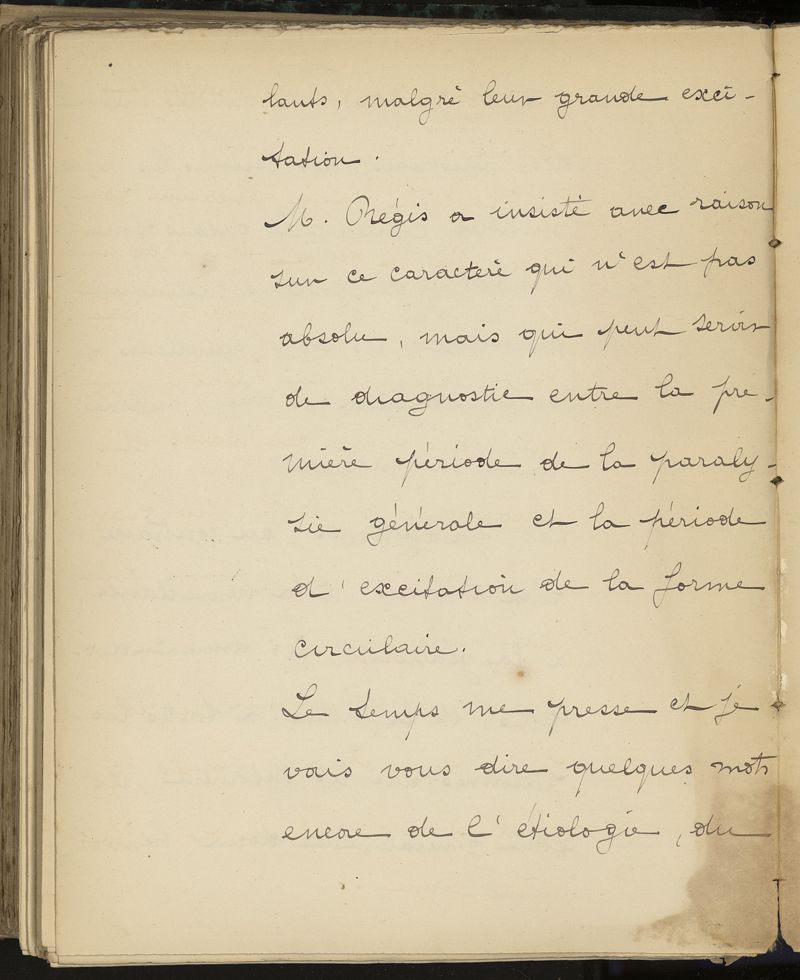 lants, malgré leur grande exci-
tation.
M. Régis a insisté avec raison
sur ce caractère qui n'est pas
absolu, mais qui peut servir
de diagnostic entre la pre-
mière période de la paraly-
sie générale et la période
d'excitation de la forme
circulaire.
Le temps me presse et je
vais vous dire quelques mots
encore de l'étiologie, du